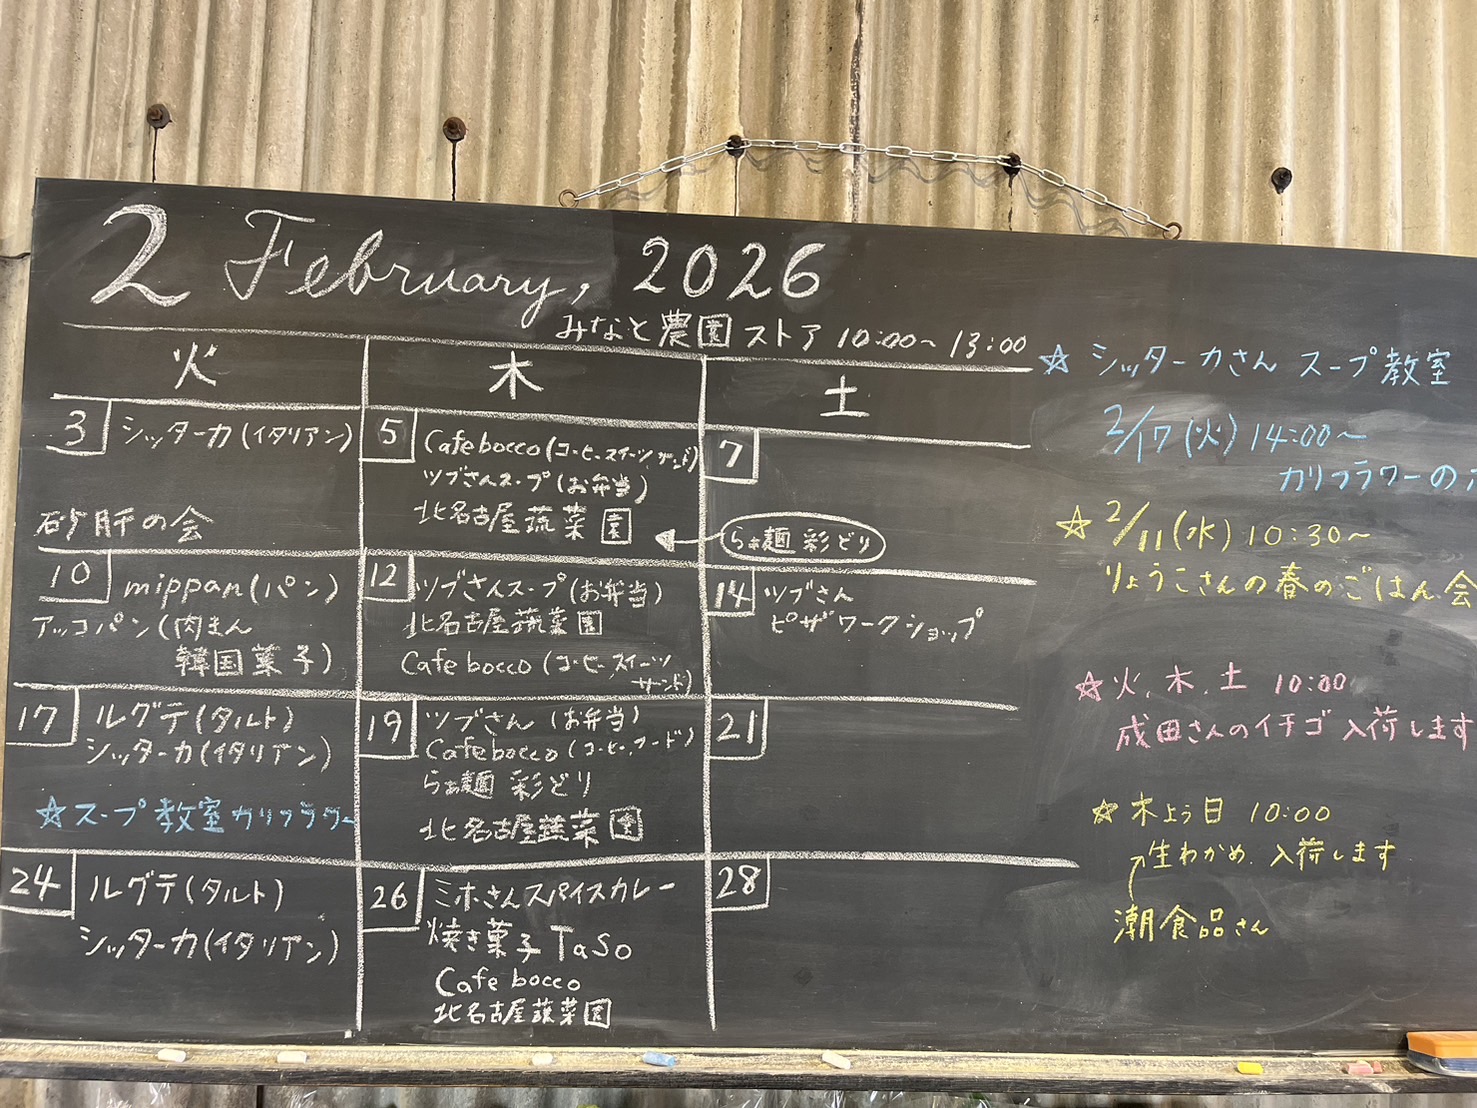 2 February, 2026
みなと農園ストア 10:00~13:00
火
木
土
3 シッターカ(イタリアン)
砂肝の会
5 Cafe bocco(コーヒースイーツ、サンド)
ツブさんスープ(お弁当)
北名古屋蔬菜園
らぁ麺 彩どり
7
10 mippan(パン)
アッコパン(肉まん
韓国菓子)
12 ツブさんスープ(お弁当)
北名古屋蔬菜園
Cafe bocco(コーヒー、スイーツ
サンド)
14 ツブさん
ピザワークショップ
17 ルグテ(タルト)
シッターカ(イタリアン)
☆スープ教室カリフラワー
19 ツブさん(お弁当)
Cafe bocco(コーヒー、フード)
らぁ麺 彩どり
北名古屋蔬菜園
21
24 ルグテ(タルト)
シッターカ(イタリアン)
26 ミホさんスパイスカレー
焼き菓子 TaSo
Cafe bocco
北名古屋蔬菜園
28
☆ シッターカさん スープ教室
2/17(火) 14:00~
カリフラワーのポ
☆ 2/11(水) 10:30~
りょうこさんの春のごはん会
☆ 火、木、土 10:00
成田さんのイチゴ入荷します
☆ 木よう日 10:00
生わかめ、入荷します
潮食品さん